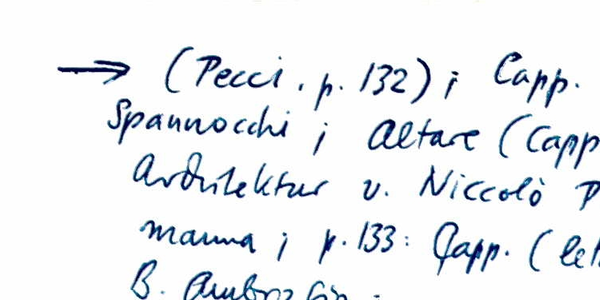 → (Pecci, p. 132) ; Capp.
Spannocchi ; Altare (Capp
Architektur v. Niccolò P
manna ; p. 133: Capp. (let
B. Ambrogio